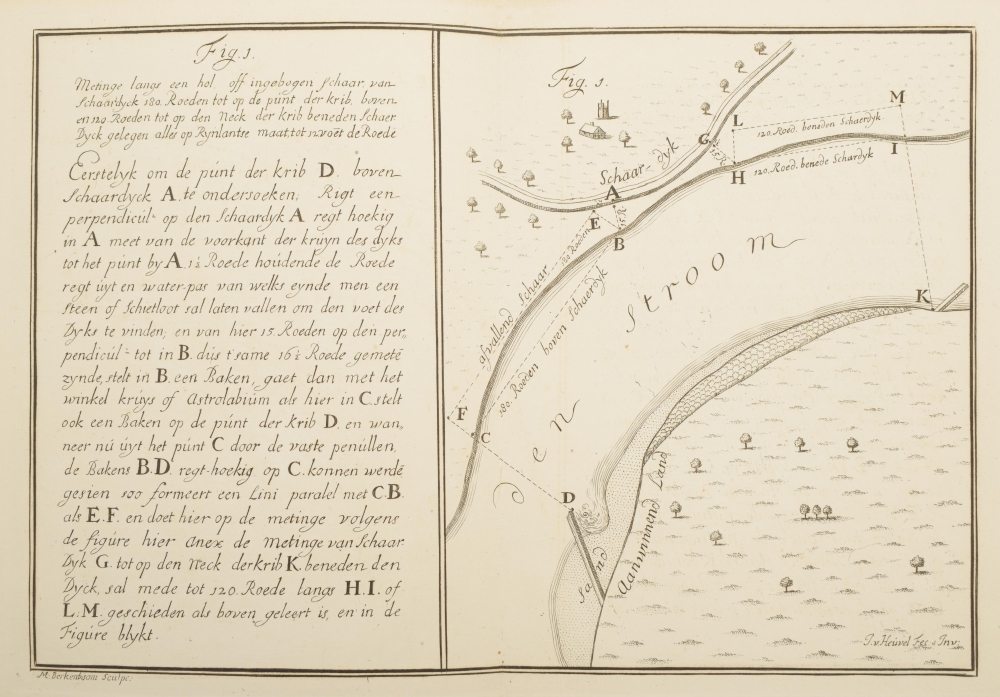 Fig. 1.
Metinge langs een hol off ingebogen Schaar van
Schaardyck 180. Roeden tot op de pùnt der krib, boven
en 120 Roeden tot op den Neck der krib beneden Schaer
Dyck gelegen alles op Rynlantse maat, tot voet de Roede
Eerstelyk om de pùnt der krib D. boven
Schaardyck A. te ondersoeken; Rigt een
perpendicùl: op den Schaardyk A regt hoekig
in A meet van de voorkant der krùyn des dyks
tot het pùnt by A. 1½ Roede hoùdende de Roede
regt ùyt en water-pas van welks eynde men een
steen of Schietloot sal laten vallen om den voet des
Dyks te vinden; en van hier 15. Roeden op den per,
pendicùl: tot in B. dùs t'same 16½ Roede gemeté
zynde, stelt in B. een Baken, gaet dan met het
winkel krùys of Astrolabiùm als hier in C. stelt
ook een Baken op de pùnt der krib D. en wan,
neer nù ùyt het pùnt C door de vaste penùllen,
de Bakens B.D. regt-hoekig op C. konnen werdé
gesien soo formeert een Lini paralel met C.B.
als E.F. en doet hier op de metinge volgens
de figùre hier anex de metinge van Schaar
Dyk G. tot op den Neck der krib K. beneden den
Dyck, sal mede tot 120. Roede langs H.I. of
L.M. geschieden als boven geleert is, en in de
Figùre blykt.
M. Berkenboom Sculpc:
Fig. 1.
M
L
120. Roed. beneden Schaerdyk
G
15. R
I
H
120. Roed. benede Schardyk
Schaar-dyk
A
E
15 R
B
180 Roeden
afvallend Schaar
180. Roeden boven Schaerdyk
Den Stroom
K
F
C
D
Sand
Aanwinnend Land
J. v. Heuvel Fec: e Inv: